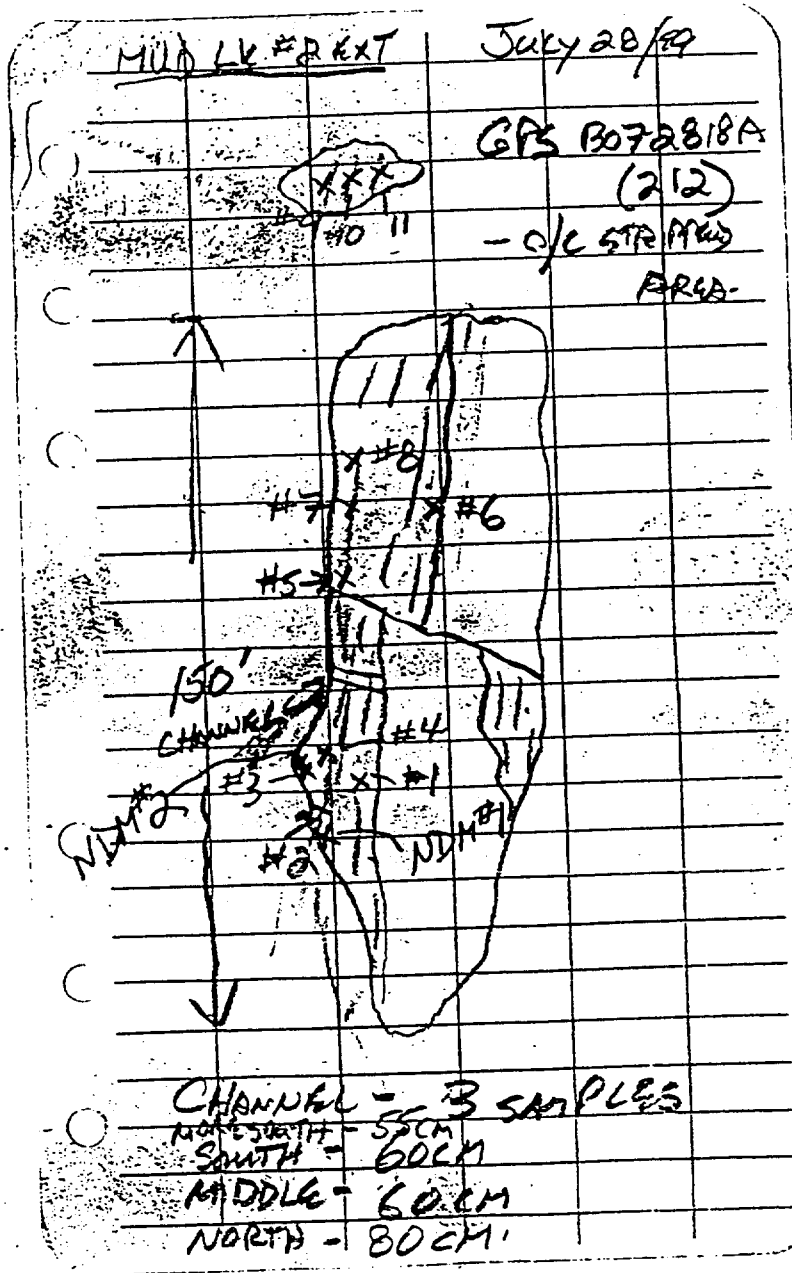 MUD LK #2 EXT
JULY 28/99
GPS B072818A
(212)
- O/C STRIPPED
AREA-
#9 #10 11
#8
#7
#6
#5
150'
CHANNEL
#4
#3
#1
NDM #2
NDM #1
#2
CHANNEL - 3 SAMPLES
MORE SOUTH - 55CM
SOUTH - 60CM
MIDDLE - 60CM
NORTH - 80CM.